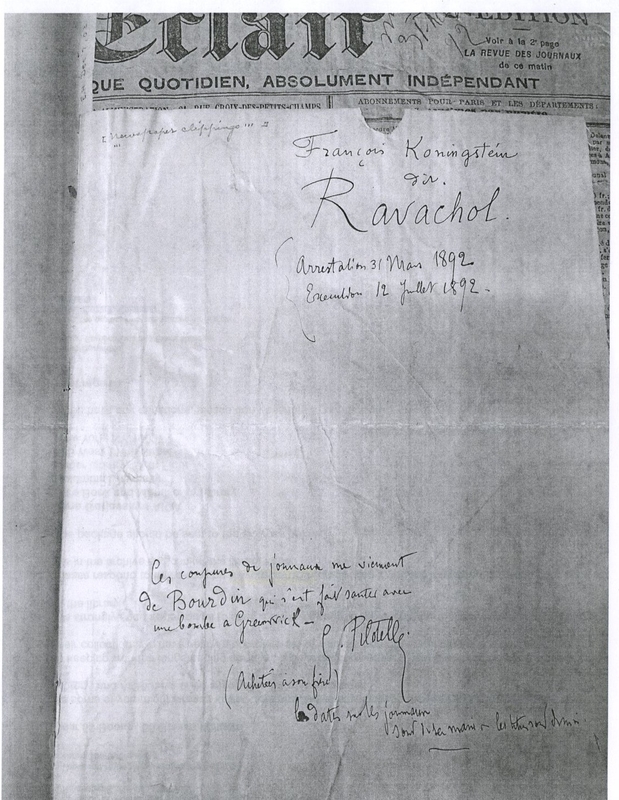 Eclair
EDITION
Voir à la 2e page
LA REVUE DES JOURNAUX
de ce matin
QUE QUOTIDIEN, ABSOLUMENT INDÉPENDANT
RUE CROIX-DES-PETITS-CHAMPS
ABONNEMENTS POUR PARIS ET LES DÉPARTEMENTS
[newspaper clippings]
François Koningstein
dit.
Ravachol.
Arrestation 31 Mars 1892
Execution 12 Juillet 1892.
Ces coupures de journaux me viennent
de Bourdin qui s'est fait sauter avec
une bombe a Greenwick –
G. Pilotelle.
(Achetées a son frère)
les dates sur les journaux
sont de sa main